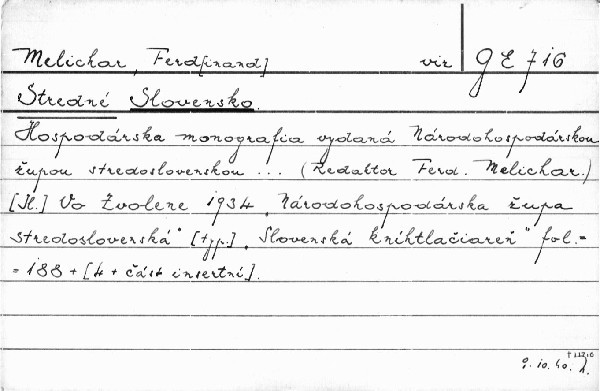 Melichar, Ferd[inand] viz gE 716
Stredné Slovensko.
Hospodárska monografia vydaná Národohospodárskou
župou stredoslovenskou ... (Redaktor Ferd. Melichar.)
[Il.] Vo Zvolene 1934 „Národohospodárska župa
stredoslovenská" [typ.] „Slovenská kníhtlačiareň" fol.=
= 188 + [4 + část insertní].
9. 10. 40.